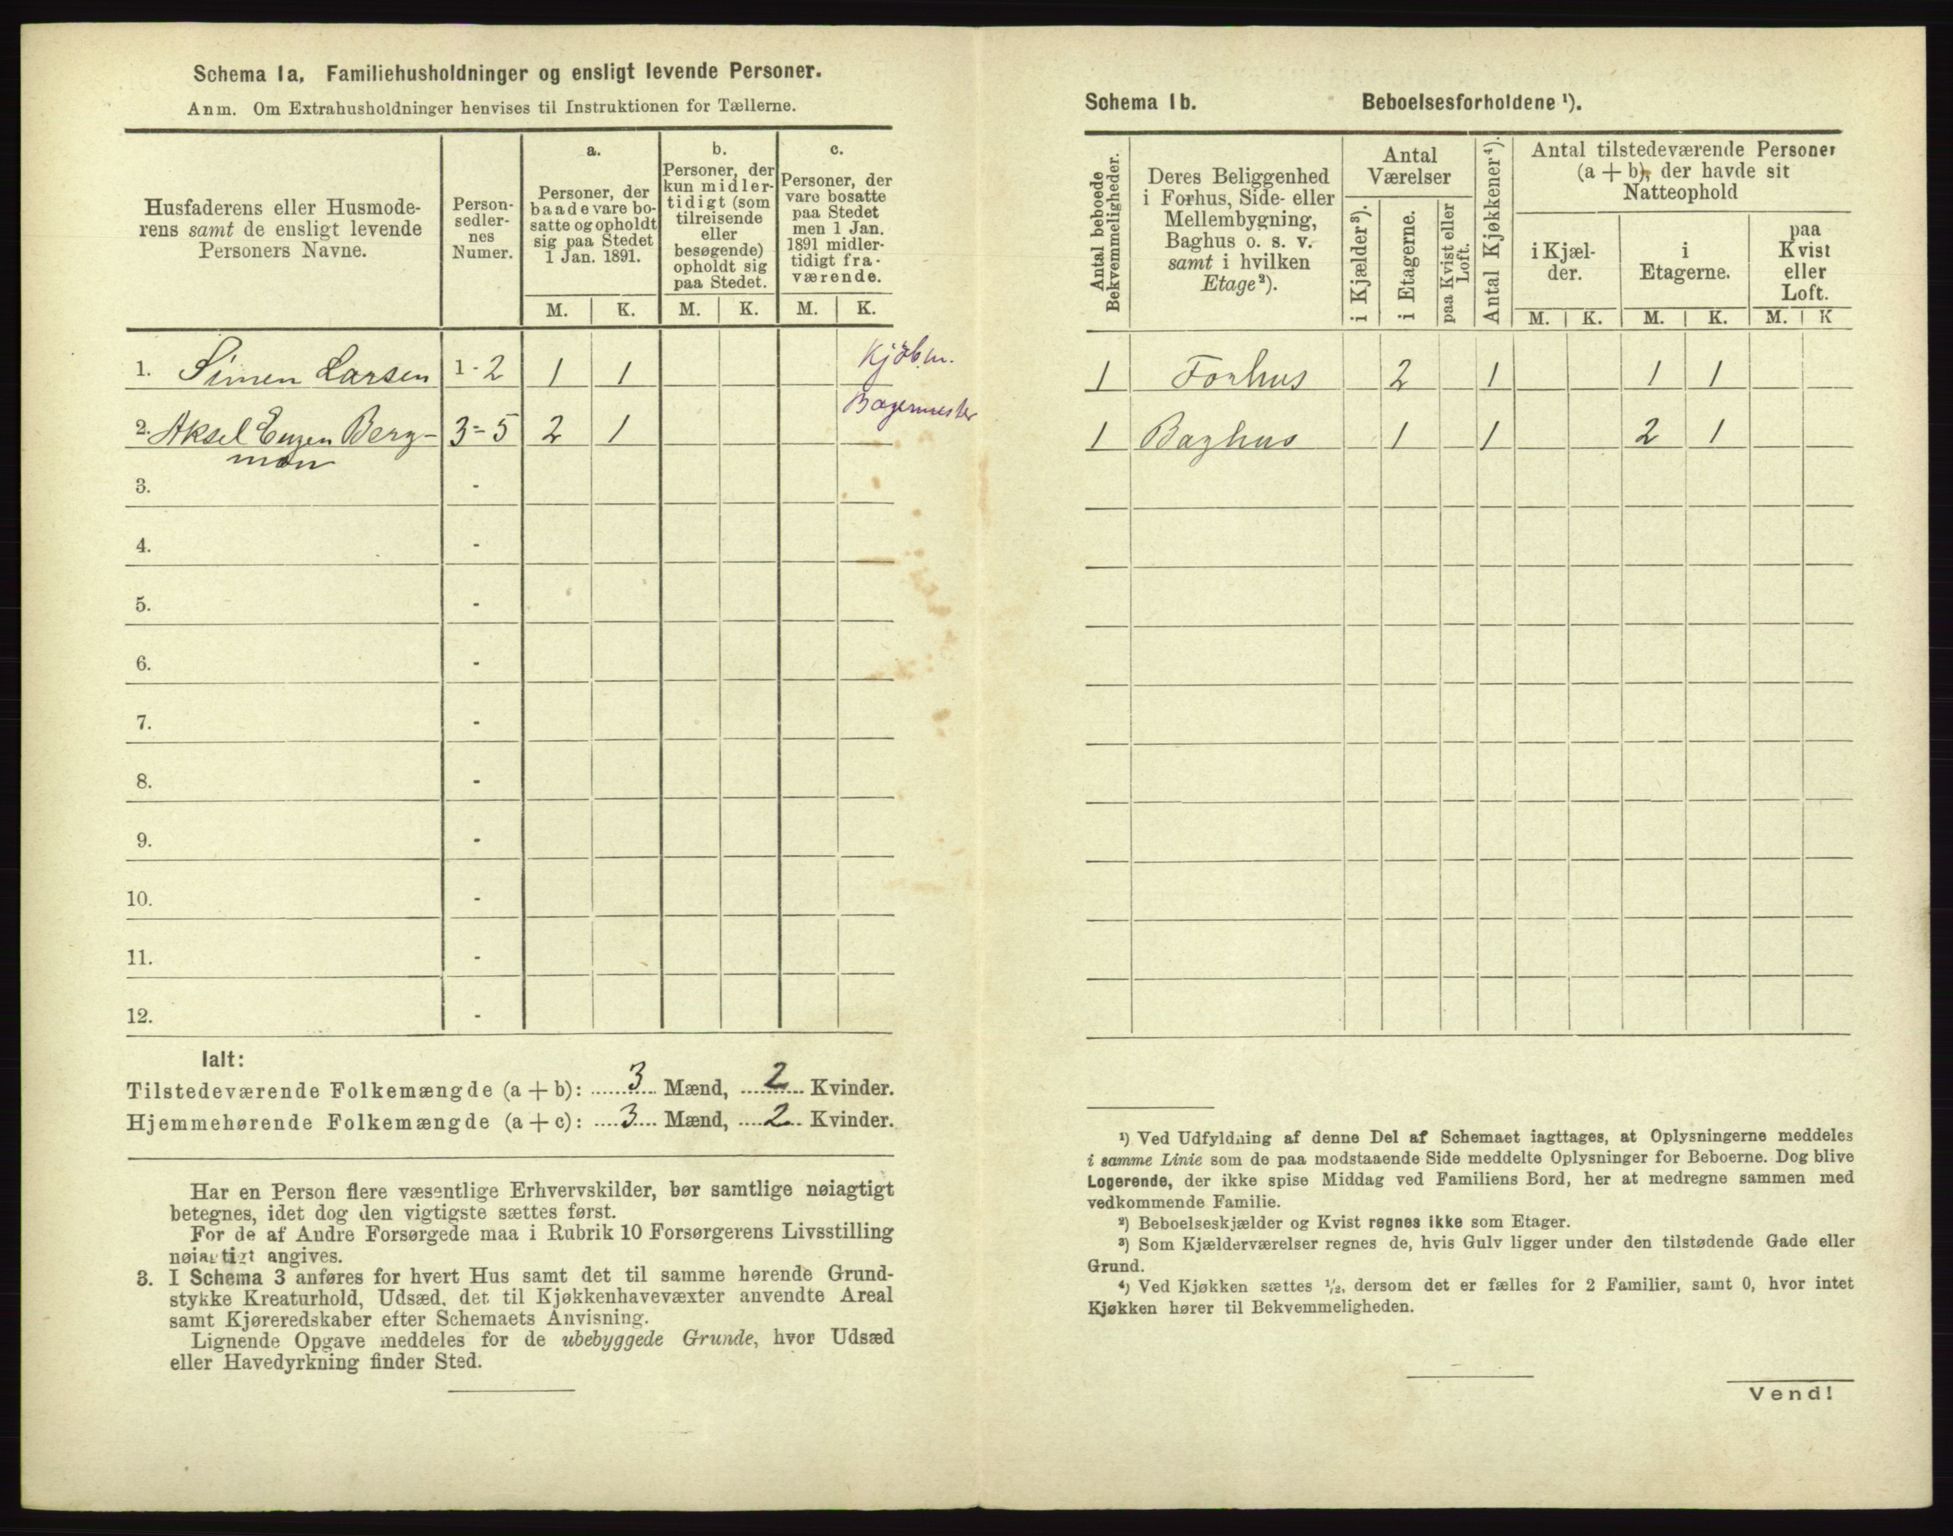 Schema 1a. Familiehusholdninger og ensligt levende Personer.
Anm. Om Extrahusholdninger henvises til Instruktionen for Tællerne.
Husfaderens eller Husmode-
rens samt de ensligt levende
Personers Navne.
Person-
sedler-
nes
Numer.
a.
Personer, der
baade vare bo-
satte og opholdt
sig paa Stedet
1 Jan. 1891.
b.
Personer, der
kun midler-
tidigt (som
tilreisende
eller
besøgende)
opholdt sig
paa Stedet.
c.
Personer, der
vare bosatte
paa Stedet
men 1 Jan.
1891 midler-
tidigt fra-
værende.
M. K. M. K. M. K.
1. Simen Larsen 1-2 1 1 Kjøbm.
2. Aksel Eugen Berg- 3-5 2 1 Bagermester
man
3. -
4. -
5. -
6. -
7. -
8. -
9. -
10. -
11. -
12. -
Ialt:
Tilstedeværende Folkemængde (a + b): 3 Mænd, 2 Kvinder.
Hjemmehørende Folkemængde (a + c): 3 Mænd, 2 Kvinder.
Har en Person flere væsentlige Erhvervskilder, bør samtlige nøiagtigt
betegnes, idet dog den vigtigste sættes først.
For de af Andre Forsørgede maa i Rubrik 10 Forsørgerens Livsstilling
nøiagtigt angives.
3. I Schema 3 anføres for hvert Hus samt det til samme hørende Grund-
stykke Kreaturhold, Udsæd, det til Kjøkkenhavevæxter anvendte Areal
samt Kjøreredskaber efter Schemaets Anvisning.
Lignende Opgave meddeles for de ubebyggede Grunde, hvor Udsæd
eller Havedyrkning finder Sted.
Schema 1b. Beboelsesforholdene ¹).
Antal beboede
Bekvemmeligheder.
Deres Beliggenhed
i Forhus, Side- eller
Mellembygning,
Baghus o. s. v.
samt i hvilken
Etage ²).
Antal
Værelser
i Kjælder ³).
i Etagerne.
paa Kvist eller
Loft.
Antal Kjøkkener ⁴).
Antal tilstedeværende Personer
(a + b), der havde sit
Natteophold
i Kjæl-
der.
i
Etagerne.
paa
Kvist
eller
Loft.
M. K. M. K. M. K
1 Forhus 2 1 1 1
1 Baghus 1 1 2 1
¹) Ved Udfyldning af denne Del af Schemaet iagttages, at Oplysningerne meddeles
i samme Linie som de paa modstaaende Side meddelte Oplysninger for Beboerne. Dog blive
Logerende, der ikke spise Middag ved Familiens Bord, her at medregne sammen med
vedkommende Familie.
²) Beboelseskjælder og Kvist regnes ikke som Etager.
³) Som Kjælderværelser regnes de, hvis Gulv ligger under den tilstødende Gade eller
Grund.
⁴) Ved Kjøkken sættes ½, dersom det er fælles for 2 Familier, samt 0, hvor intet
Kjøkken hører til Bekvemmeligheden.
Vend!